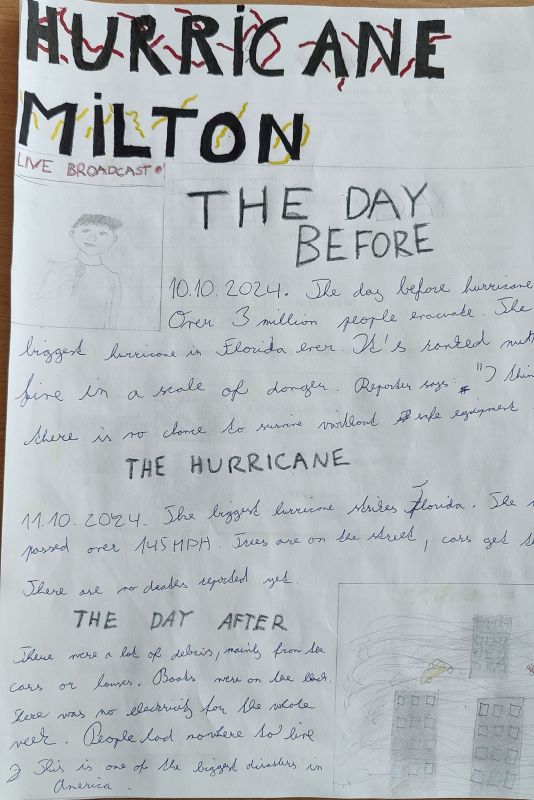 HURRICANE
MILTON
LIVE BROADCAST
THE DAY
BEFORE
10.10.2024. The day before hurricane
Over 3 million people evacuate. The
biggest hurricane in Florida ever. It's ranked
five in a scale of danger. Reporter says: "I
there is no chance to survive without safe equipment
THE HURRICANE
11.10.2024. The biggest hurricane strikes Florida. The
passed over 145 MPH. Trees are on the street, cars get
There are no deaths reported yet.
THE DAY AFTER
There were a lot of debris, mainly from the
cars or houses. Boats were on the
There was no electricity for the whole
week. People had nowhere to live
This is one of the biggest disasters in
America.